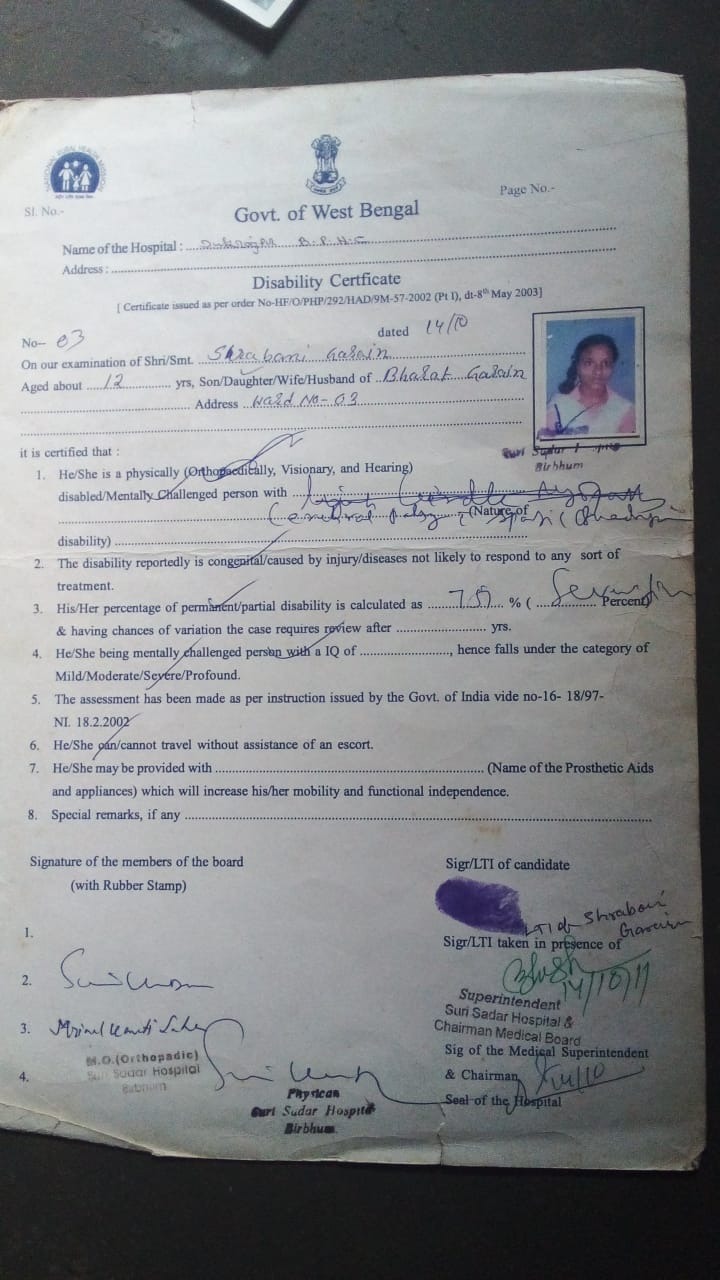 NATIONAL RURAL HEALTH MISSION
Sl. No.-
Page No.-
Govt. of West Bengal
Name of the Hospital : B.P.H.C
Address :
Disability Certficate
[ Certificate issued as per order No-HF/O/PHP/292/HAD/9M-57-2002 (Pt I), dt-8th May 2003]
No- 03
dated 14/10
On our examination of Shri/Smt. Shrabani Garain
Aged about 12 yrs, Son/Daughter/Wife/Husband of Bharat Garain
Address Ward No-03
Suri Sadar
Birbhum
it is certified that :
1. He/She is a physically (Orthopaedically, Visionary, and Hearing)
disabled/Mentally Challenged person with
(Nature of
disability)
2. The disability reportedly is congenital/caused by injury/diseases not likely to respond to any sort of
treatment.
3. His/Her percentage of permanent/partial disability is calculated as % ( Percent)
& having chances of variation the case requires review after yrs.
4. He/She being mentally challenged person with a IQ of , hence falls under the category of
Mild/Moderate/Severe/Profound.
5. The assessment has been made as per instruction issued by the Govt. of India vide no-16- 18/97-
NI. 18.2.2002
6. He/She can/cannot travel without assistance of an escort.
7. He/She may be provided with (Name of the Prosthetic Aids
and appliances) which will increase his/her mobility and functional independence.
8. Special remarks, if any
Signature of the members of the board
(with Rubber Stamp)
Sigr/LTI of candidate
LTI of Shrabani
Garain
1.
Sigr/LTI taken in presence of
14/10/11
2.
Superintendent
Suri Sadar Hospital &
Chairman Medical Board
3.
Sig of the Medical Superintendent
M.O.(Orthopadic)
Suri Sadar Hospital
Birbhum
4.
& Chairman
Physican
Suri Sadar Hospital
Birbhum
Seal of the Hospital